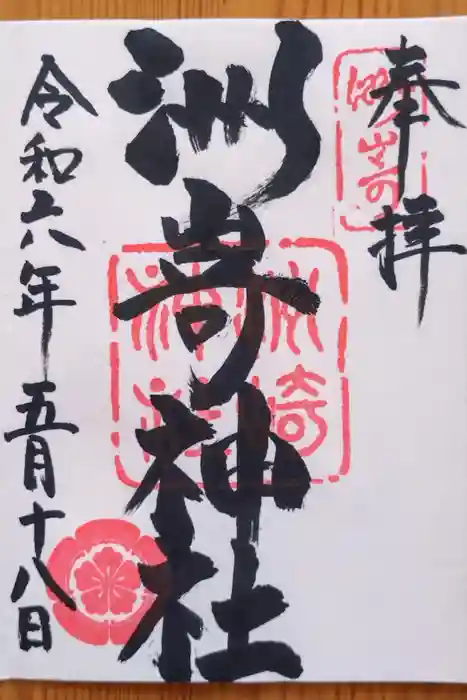 奉拝
洲嵜神社
令和六年五月十八日
洲崎
神社